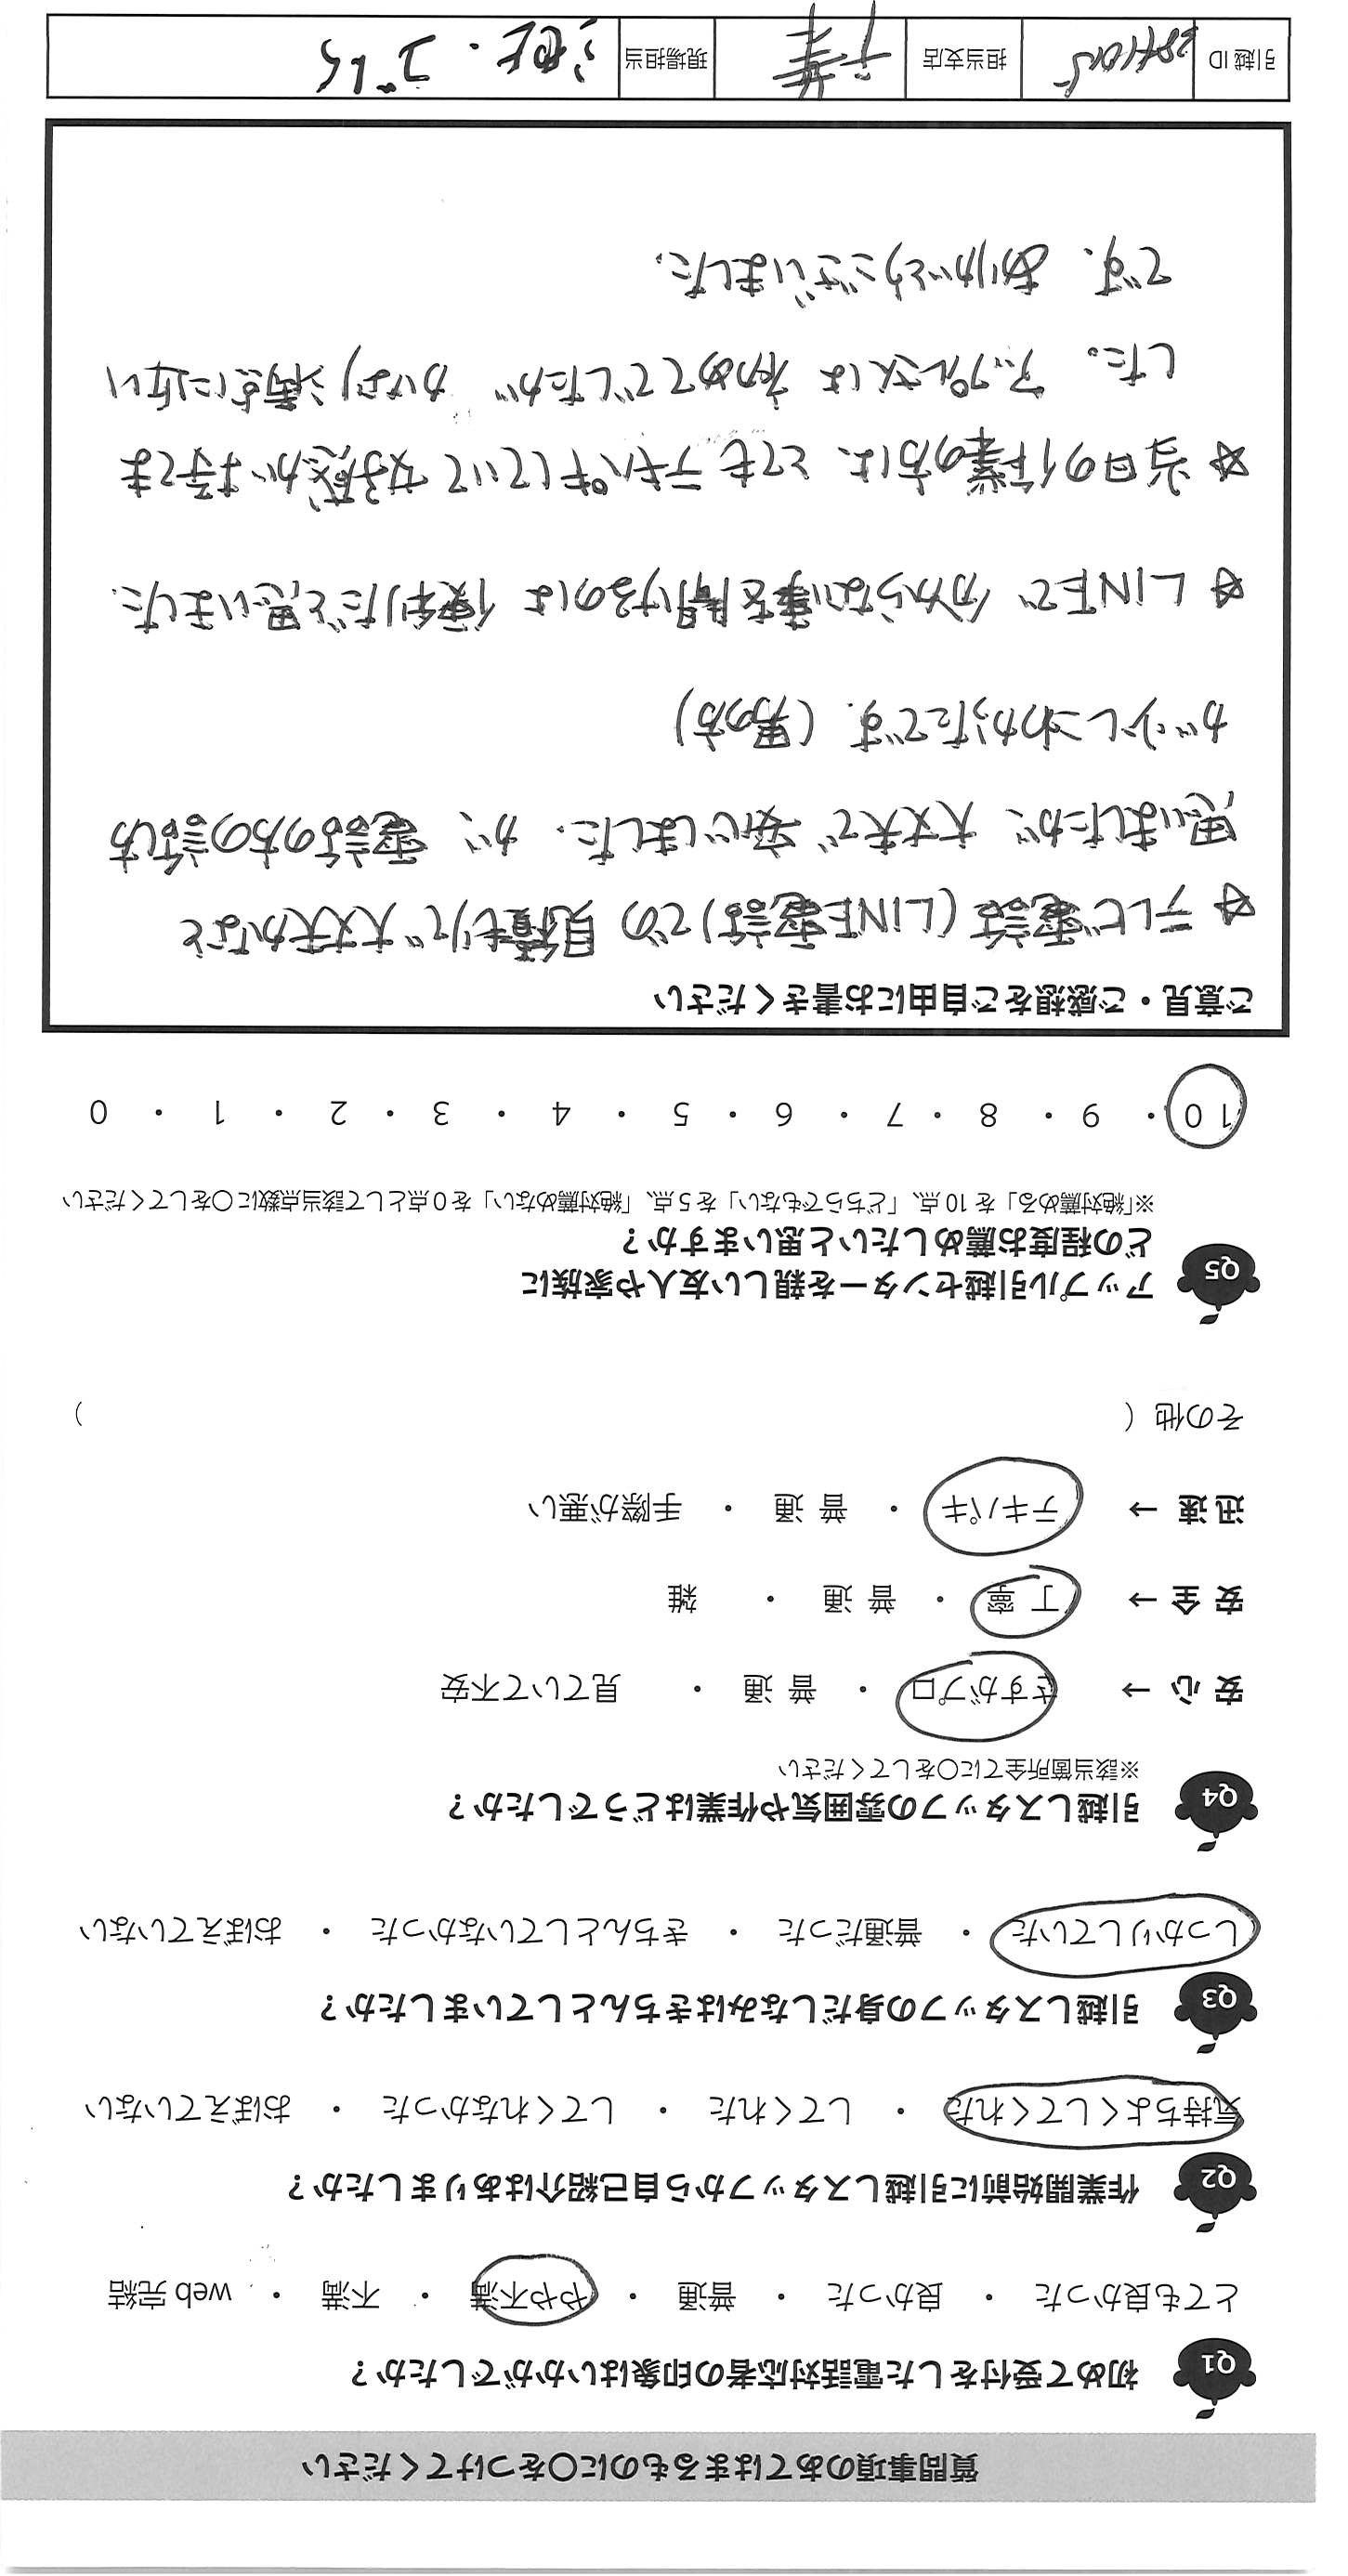 質問事項のあてはまるものに〇をつけてください
Q1 初めて受付をした電話対応者の印象はいかがでしたか？
とても良かった ・ 良かった ・ 普通 ・ やや不満 ・ 不満 ・ web 完結
Q2 作業開始前に引越しスタッフから自己紹介はありましたか？
気持ちよくしてくれた ・ してくれた ・ してくれなかった ・ おぼえていない
Q3 引越しスタッフの身だしなみはきちんとしていましたか？
しっかりしていた ・ 普通だった ・ きちんとしていなかった ・ おぼえていない
Q4 引越しスタッフの雰囲気や作業はどうでしたか？
※該当箇所全てに〇をしてください
安 心 → さすがプロ ・ 普 通 ・ 見ていて不安
安 全 → 丁 寧 ・ 普 通 ・ 雑
迅 速 → テキパキ ・ 普 通 ・ 手際が悪い
その他（ ）
Q5 アップル引越センターを親しい友人や家族に
どの程度お薦めしたいと思いますか？
※「絶対薦める」を 10 点、「どちらでもない」を 5 点、「絶対薦めない」を 0 点として該当点数に〇をしてください
10 ・ 9 ・ 8 ・ 7 ・ 6 ・ 5 ・ 4 ・ 3 ・ 2 ・ 1 ・ 0
ご意見・ご感想をご自由にお書きください
☆ テレビ電話（LINE電話）での 見積もりで 大丈夫かなと
思いましたが、大丈夫で 安心しました. が、電話の方の話し方
が少しこわかったです.（男の方）
☆ LINEで 分からない事を聞けるのは 便利だと思いました.
☆ 当日の作業の方は、とても テキパキしていて 好感が持てま
した。 アップルさんは 初めてでしたが かなり満点に近い
です. ありがとうございました.
引越 ID 担当支店 千葉 現場担当